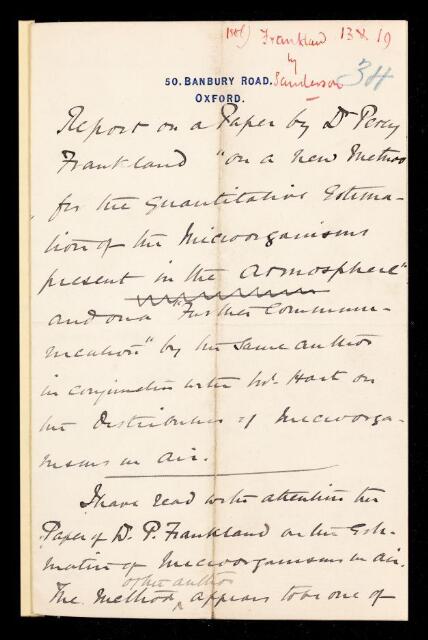 1886) Frankland 13 & 19
by
Sanderson 34
50. BANBURY ROAD.
OXFORD.
Report on a Paper by Dr Percy
Frankland "on a new Method
for the Quantitative Estima-
tion of the Microorganisms
present in the Atmosphere"
and on a "Further Commun-
ication" by the same author
in conjunction with Mr. Hart on
the Distribution of Microorga-
nisms in air.
I have read with attention the
Paper of Dr. P. Frankland on the Esti-
mation of Microorganisms in air.
of the author
The Method appears to be one of